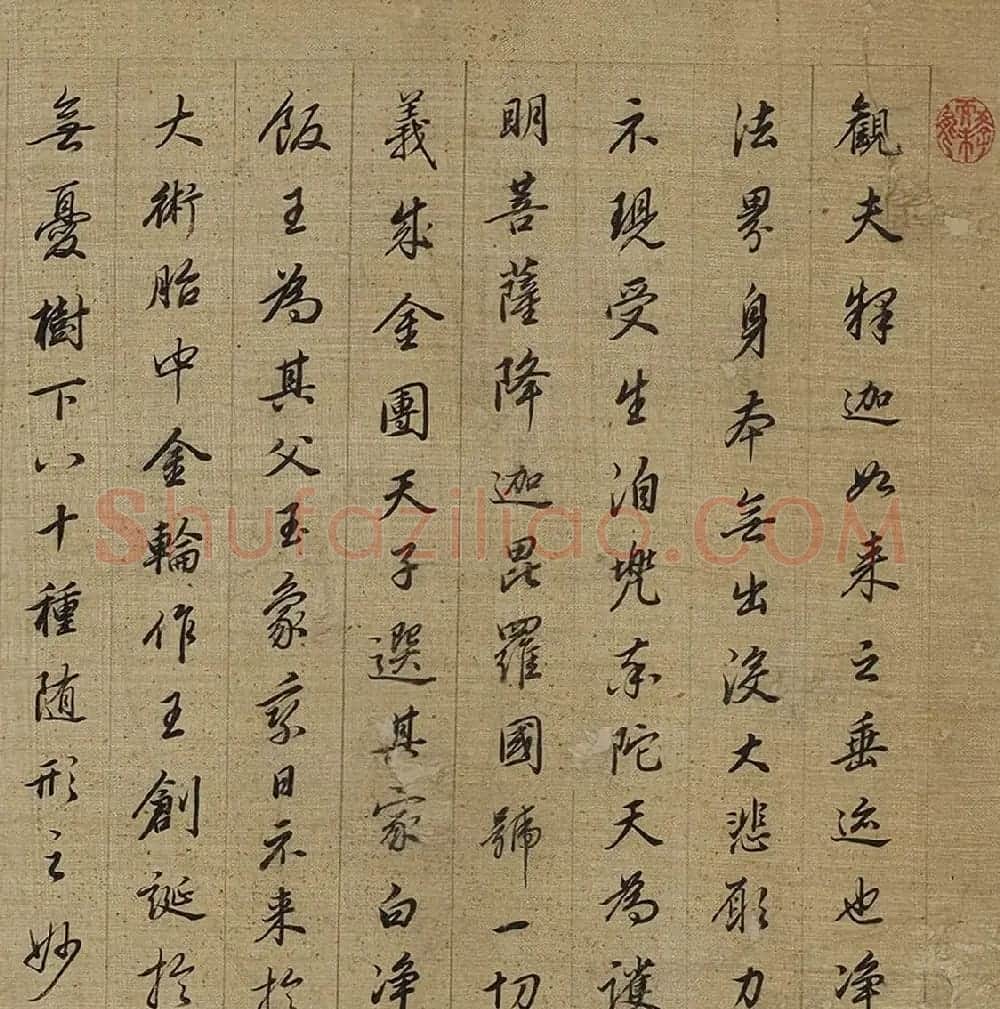 觀夫釋迦如来之垂迹也净
法界身本無出没大悲願力
示現受生洎兜率陀天為護
明菩薩降迦毘羅國號一切
義成金團天子選其家白净
飯王為其父玉象乘日示来於
大術胎中金輪作王創誕於
無憂樹下八十種随形之妙
Shufaziliao.COM